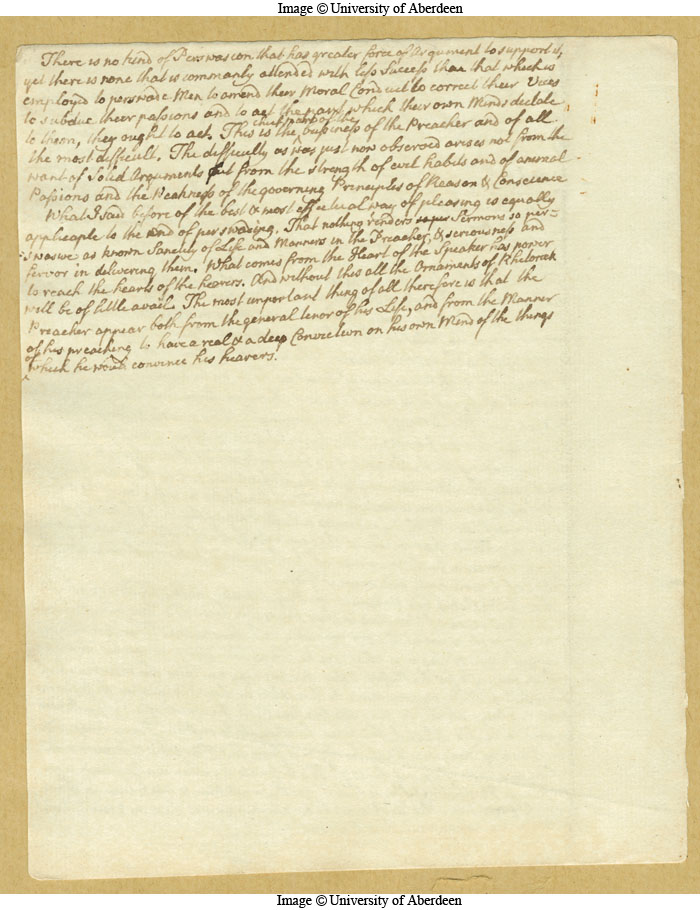 Image © University of Aberdeen
There is no kind of Perswasion that has greater force of Argument to support it,
yet there is none that is commonly attended with less Success than that which is
employed to perswade Men to amend their Moral Conduct to correct their Vices
to subdue their passions and to act the part which their own Minds declare
to them, they ought to act. This is the chief part of the business of the Preacher and of all
the most difficult. The difficulty as was just now observed arises not from the
want of Solid Arguments but from the strength of evil habits and of unreal
Passions and the Weakness of the governing Principles of Reason & Conscience
What I said before of the best & most effectual way of pleasing is equally
applicaple to the end of perswading. That nothing renders Sermons so per-
swasive as known Sanctity of Life and Manners in the Preacher, & seriousness and
fervor in delivering them. What comes from the Heart of the Speaker has power
to reach the hearts of the hearers. And without this all the Ornaments of Rhetorick
will be of little avail. The most important thing of all therefore is that the
Preacher appear both from the general tenor of his Life, and from the Manner
of his preaching to have a real & a deep Conviction on his own Mind of the things
of which he would convince his hearers.
Image © University of Aberdeen